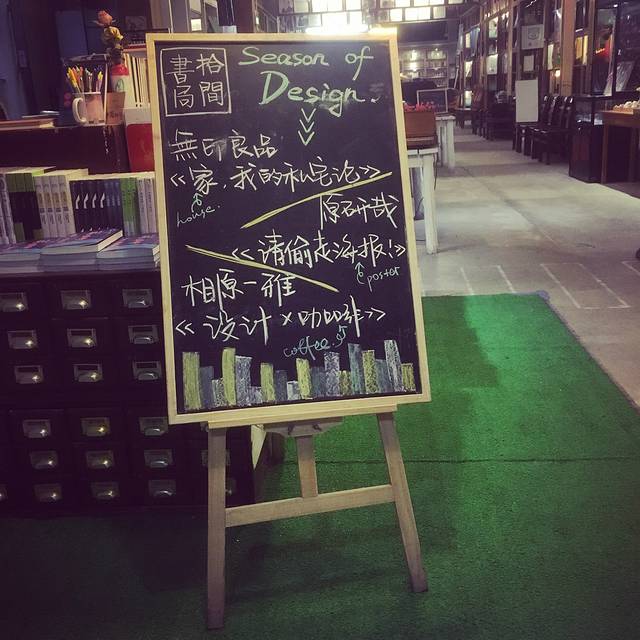 拾間
書局
Season of
Design.
無印良品
《家，我的私宅论》
house.
原研哉
《请偷走海报!》
poster
相原一雅
《设计×咖啡》
coffee